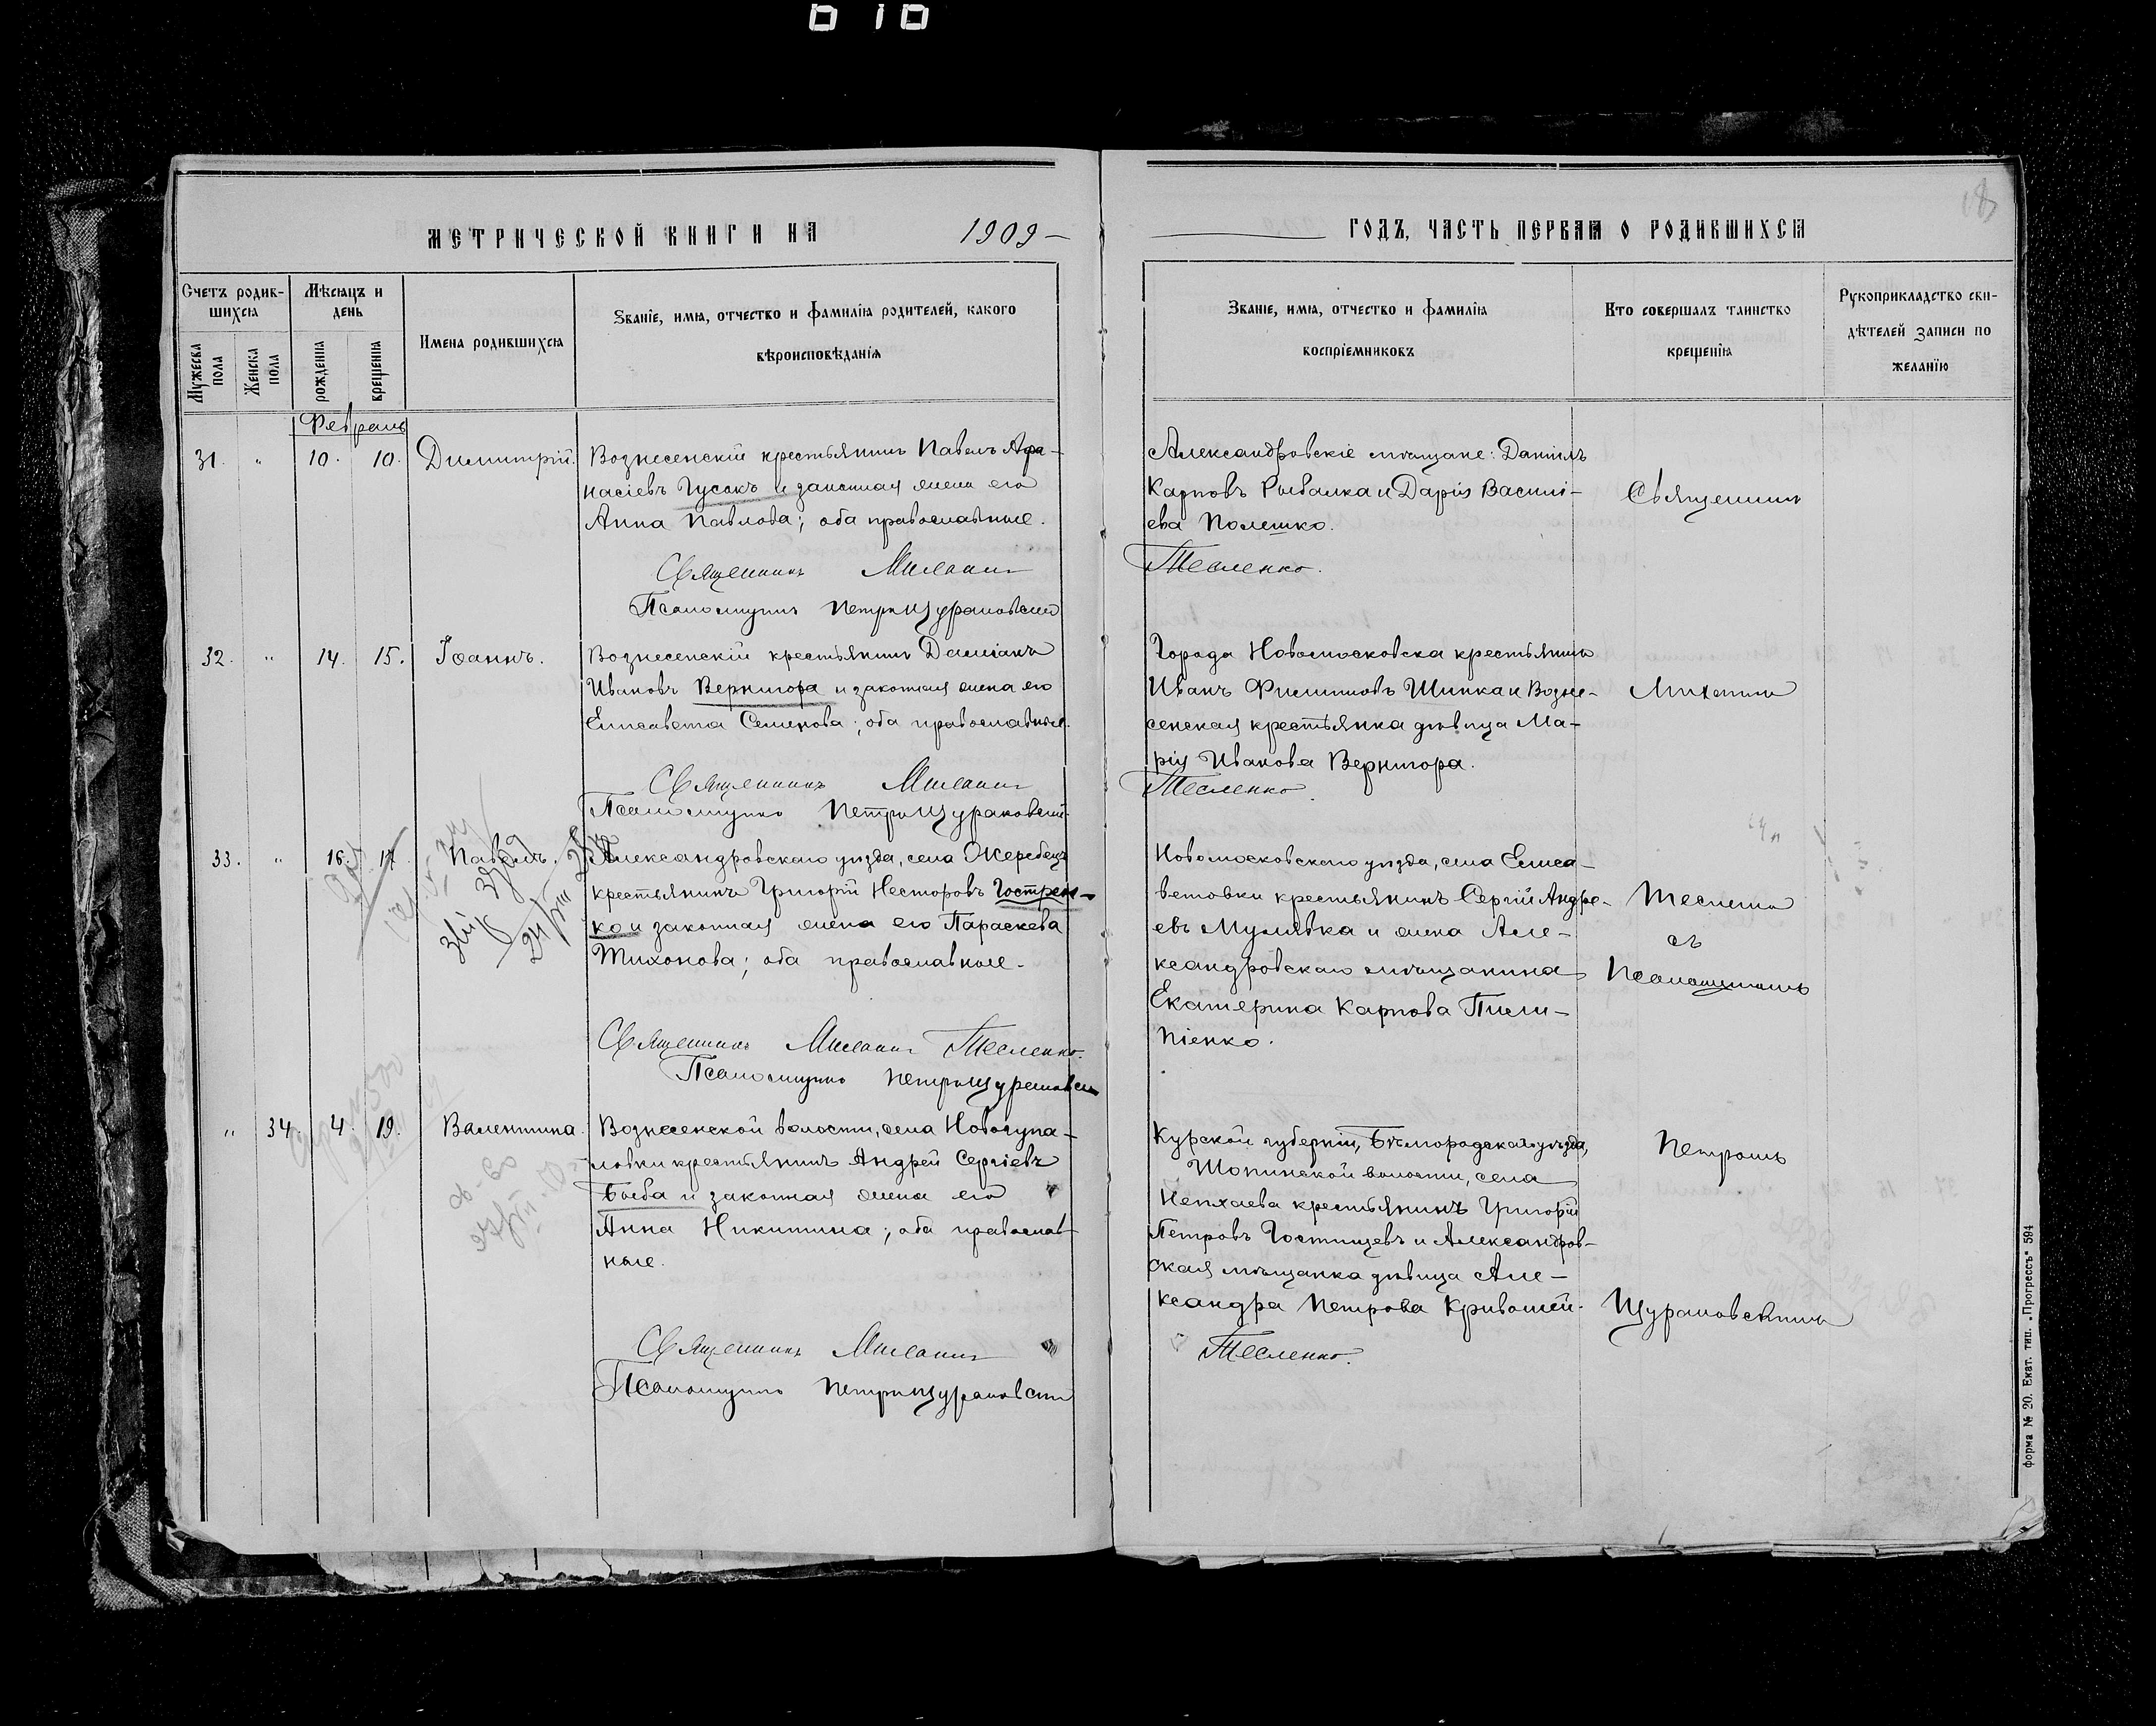 МЕТРИЧЕСКОЙ КНИГИ НА 1909 —
Счетъ родив-
шихся
Мужеска
пола
Женска
пола
Мѣсяцъ и
день
рожденія
крещенія
Имена родившихся
Званіе, имя, отчество и фамилія родителей, какого
вѣроисповѣданія
Февраль
31. " 10. 10. Димитрій.
Вознесенскій крестьянинъ Павелъ Афа-
насіевъ Гусакъ и законная жена его
Анна Павлова; оба православные.
Священникъ Михаилъ
Псаломщикъ Петръ Щурановскій
32. " 14. 15. Іоаннъ.
Вознесенскій крестьянинъ Даміанъ
Ивановъ Вернигора и законная жена его
Елисавета Семенова; оба православные.
Священникъ Михаилъ
Псаломщикъ Петръ Щурановскій
33. " 16. 17. Павелъ.
Александровскаго уѣзда, села Жеребецъ
крестьянинъ Григорій Несторовъ Гострен-
ко и законная жена его Параскева
Тихонова; оба православные.
Священникъ Михаилъ Тесленко.
Псаломщикъ Петръ Щурановскій
" 34. 4. 19. Валентина.
Вознесенской волости, села Новогупа-
ловки крестьянинъ Андрей Сергіевъ
Быба и законная жена его
Анна Никитина; оба православ-
ные.
Священникъ Михаилъ
Псаломщикъ Петръ Щурановскій
18
ГОДЪ, ЧАСТЬ ПЕРВАЯ О РОДИВШИХСЯ
Званіе, имя, отчество и фамилія
воспріемниковъ
Кто совершалъ таинство
крещенія
Рукоприкладство сви-
дѣтелей записи по
желанію
Александровскіе мѣщане: Даніилъ
Карповъ Рыбалка и Дарія Василі-
ева Полешко.
Тесленко.
Города Новомосковска крестьянинъ
Иванъ Филипповъ Шинка и Возне-
сенская крестьянка дѣвица Ма-
рія Иванова Вернигора.
Тесленко
Новомосковскаго уѣзда, села Елиса-
ветовки крестьянинъ Сергій Андре-
евъ Муливка и жена Але-
ксандровскаго мѣщанина
Екатерина Карпова Пили-
піенко.
Курской губерніи, Бѣлгородскаго уѣзда,
Шопинской волости, села
Непхаева крестьянинъ Григорій
Петровъ Гостищевъ и Александров-
ская мѣщанка дѣвица Але-
ксандра Петрова Кривошей.
Тесленко.
Священникъ
Михаилъ
Тесленко
съ
Псаломщикомъ
Петромъ
Щурановскимъ
форма № 20. Екат. тип. „Прогрессъ" 594